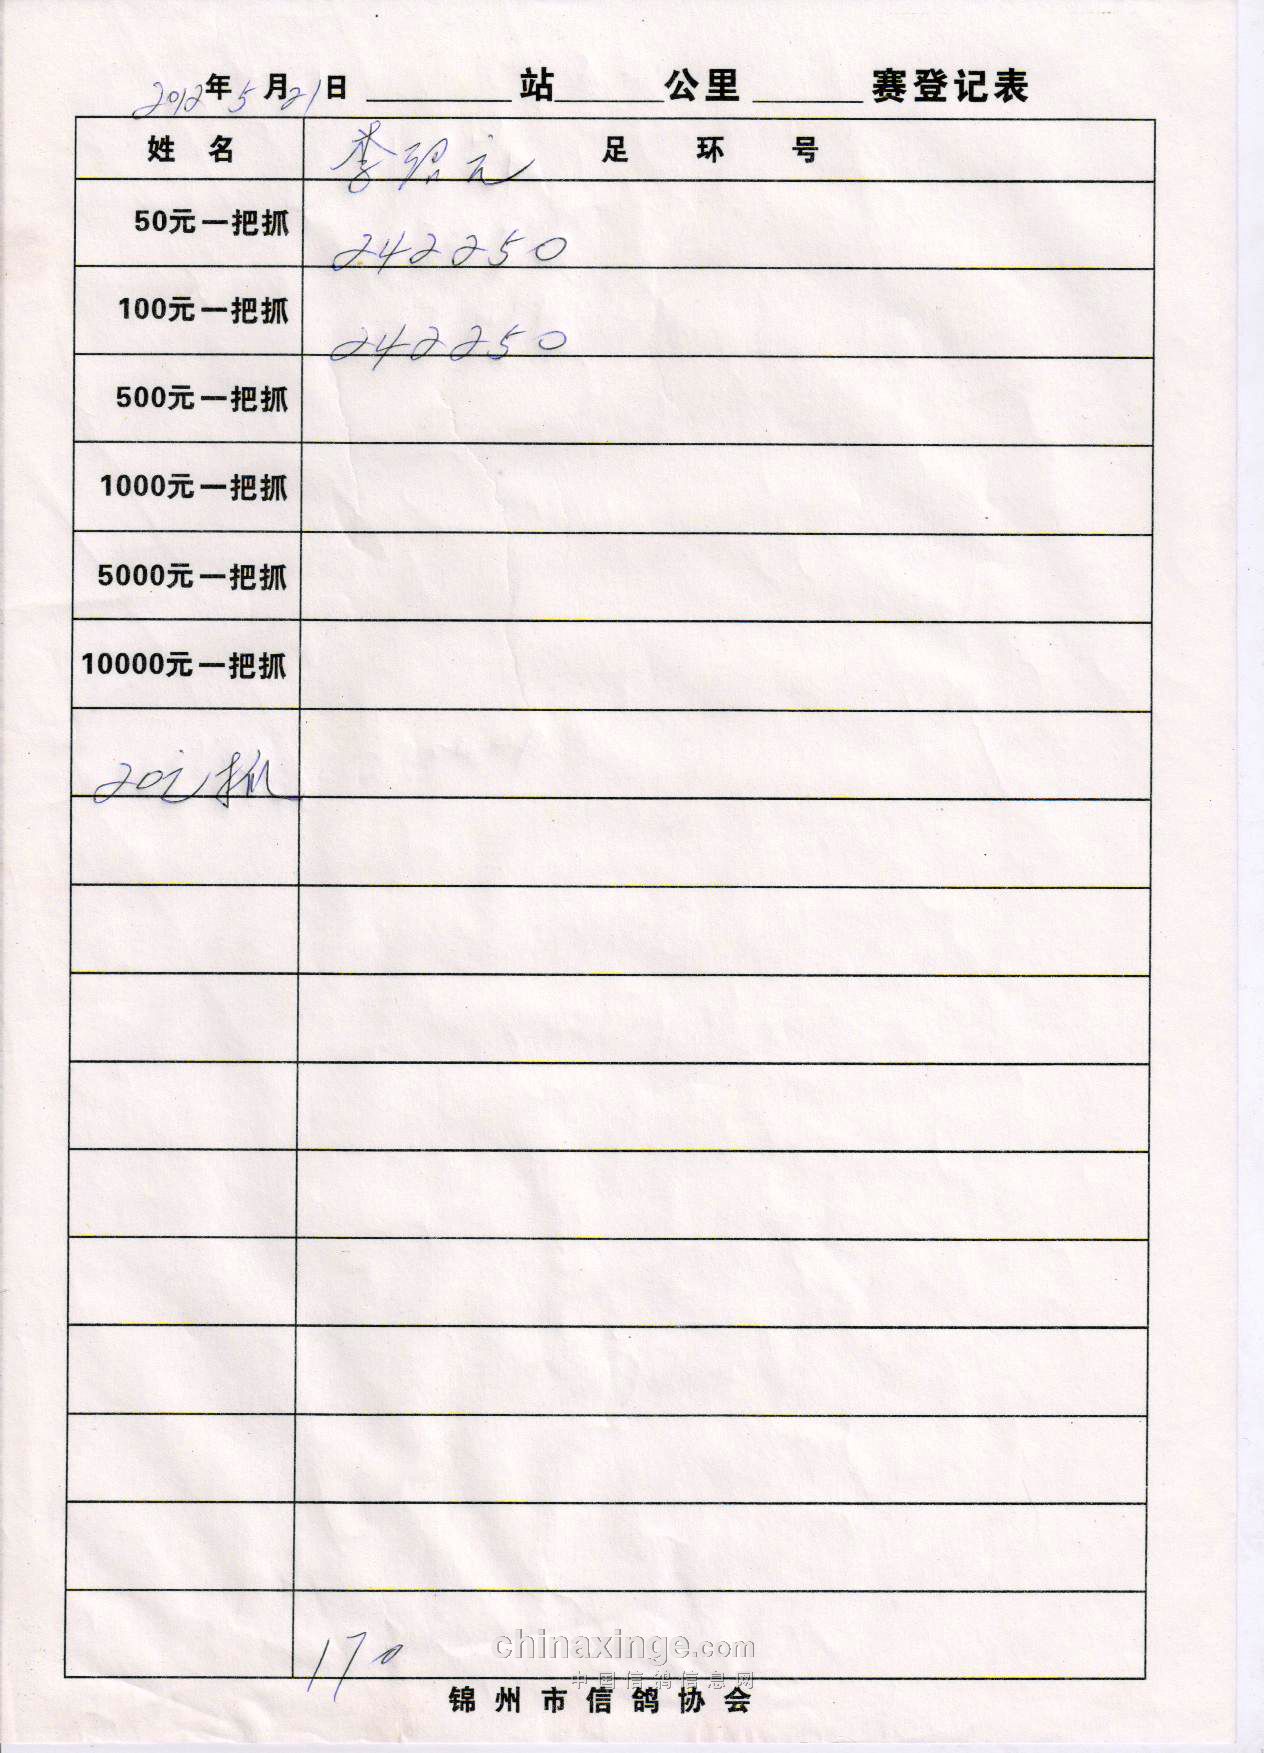 2012年5月21日 站 公里 赛登记表
姓名 李 足环号
50元一把抓 242250
100元一把抓 242250
500元一把抓
1000元一把抓
5000元一把抓
10000元一把抓
20元抓
170
chinaxinge.com
中国信鸽信息网
锦州市信鸽协会